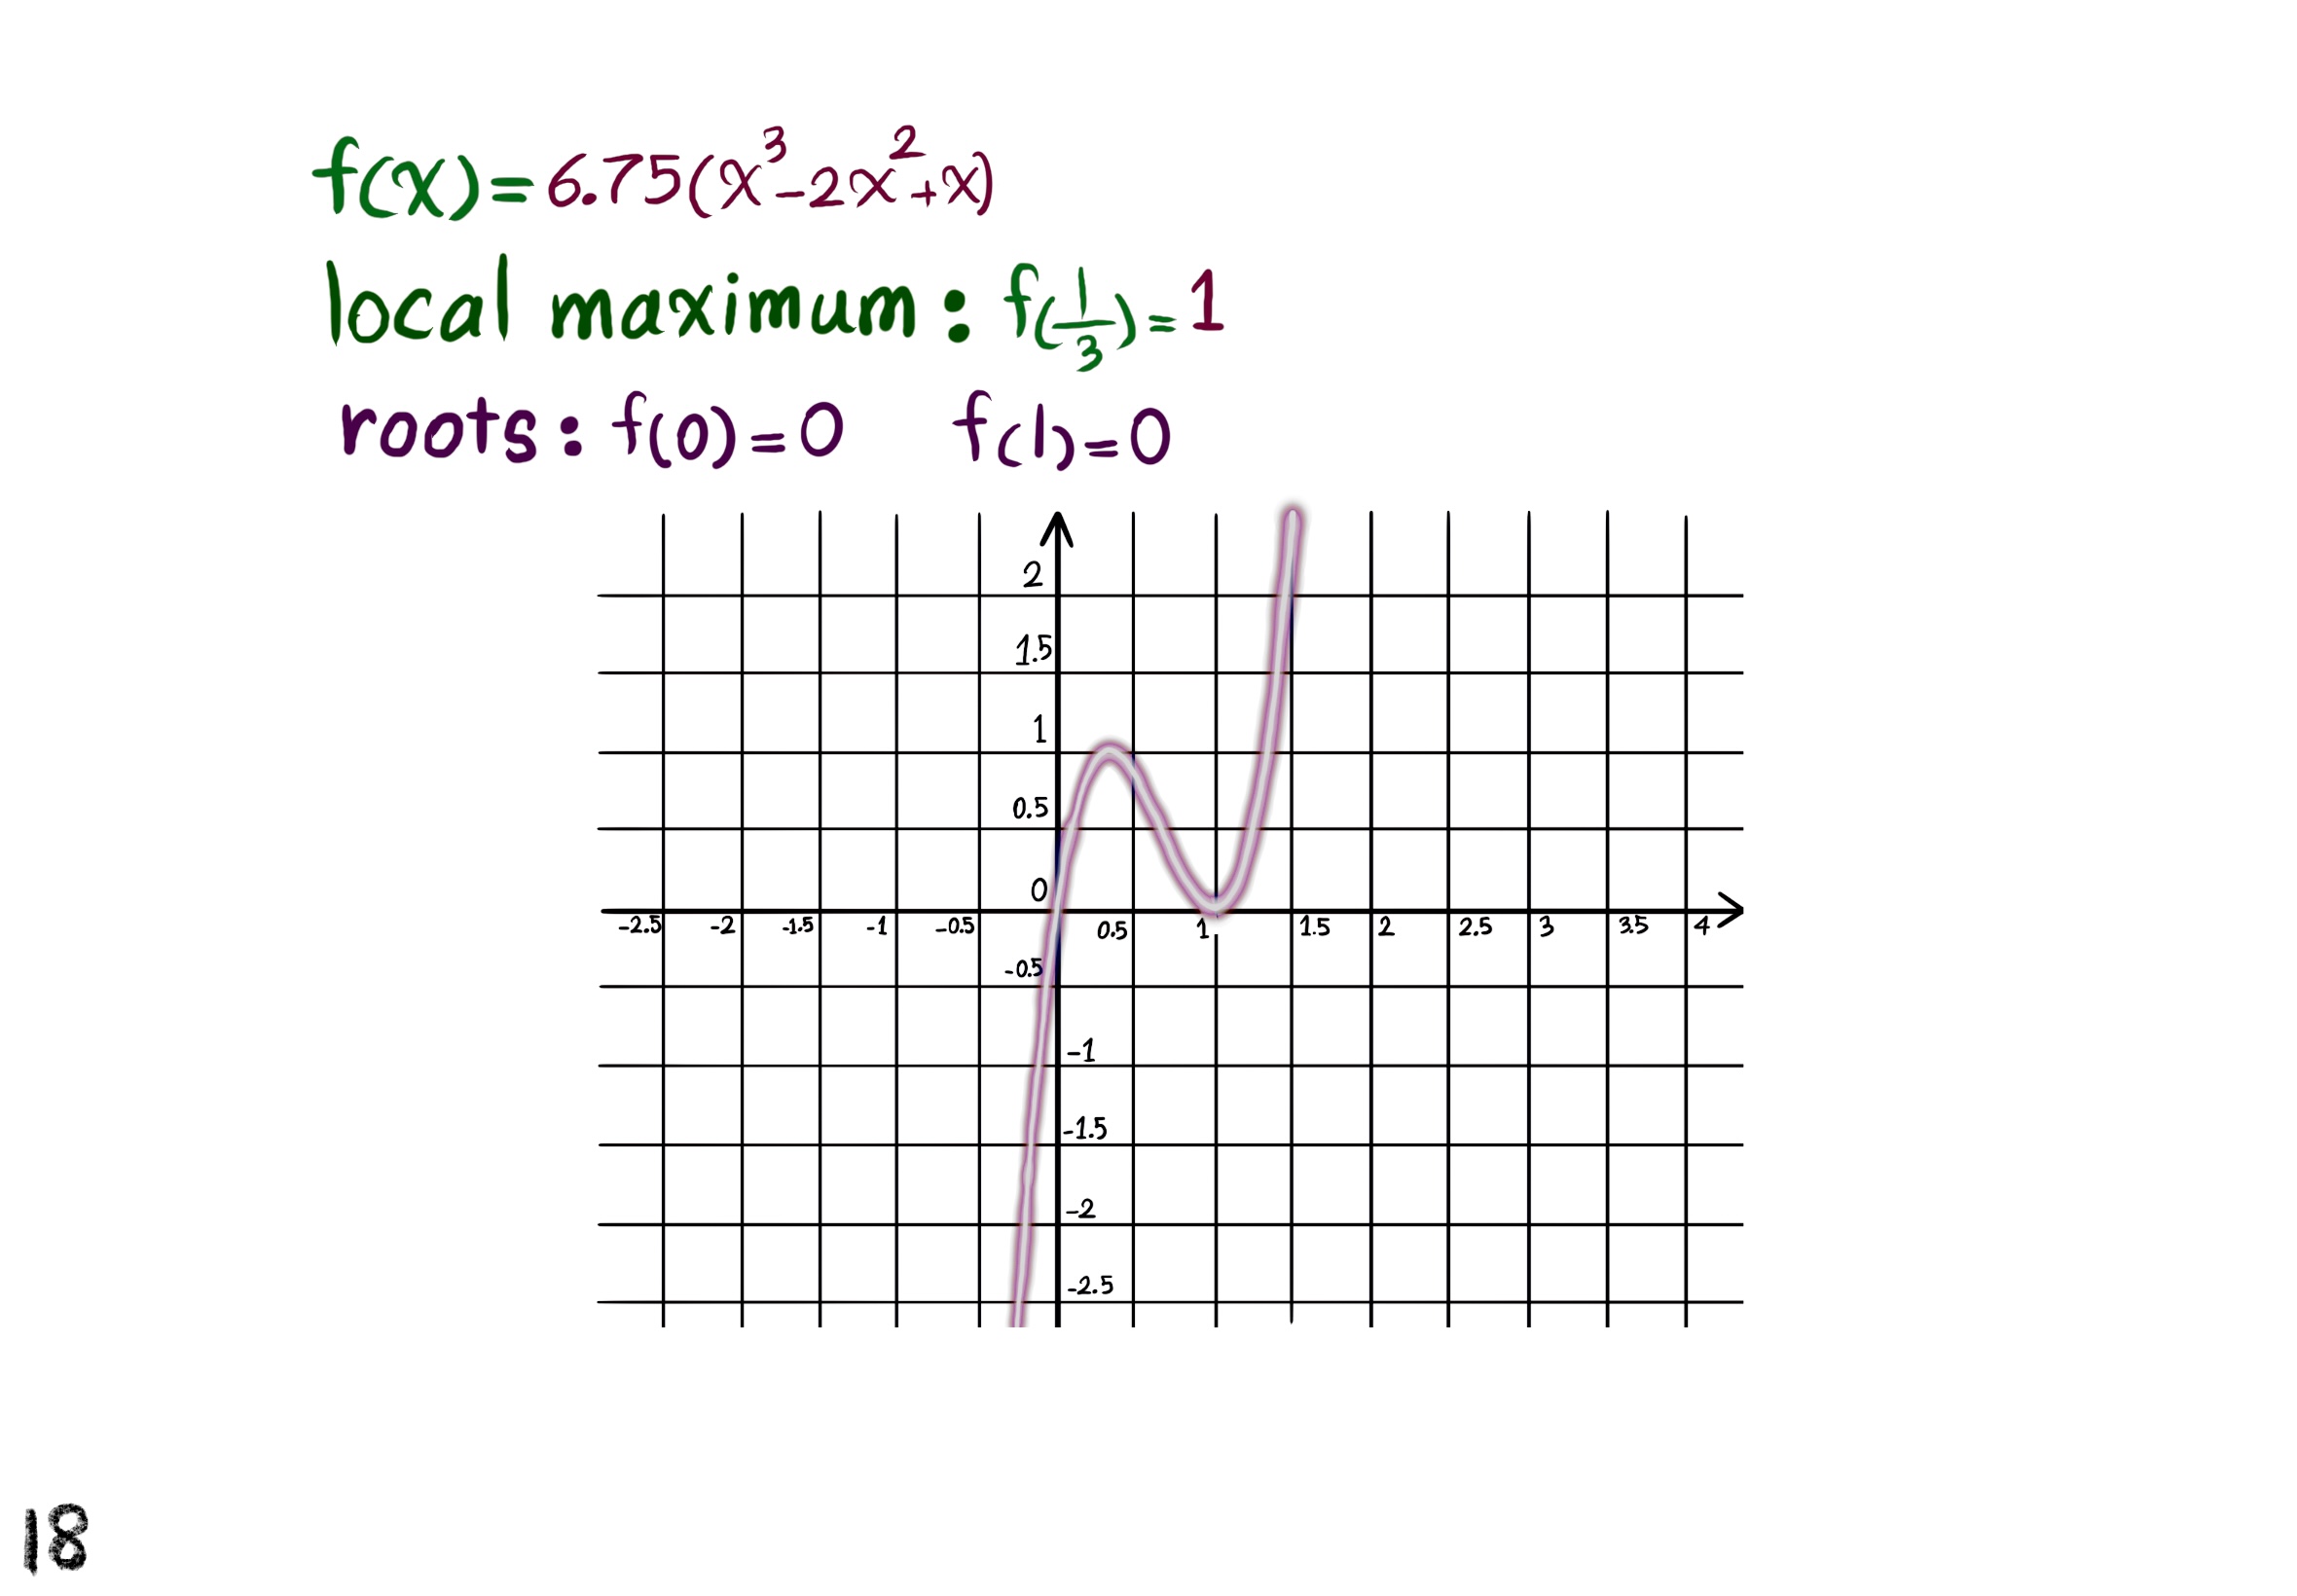 f(x)=6.75(x³-2x²+x)
local maximum: f(1/3)=1
roots: f(0)=0 f(1)=0
2
1.5
1
0.5
0
-2.5 -2 -1.5 -1 -0.5 0.5 1 1.5 2 2.5 3 3.5 4
-0.5
-1
-1.5
-2
-2.5
18